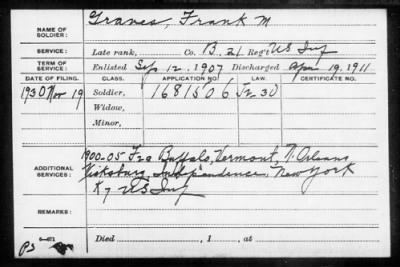 NAME OF SOLDIER: Graves, Frank M
SERVICE: Late rank, Co. B. 21 Reg't US Inf
TERM OF SERVICE: Enlisted Sep 12, 1907 Discharged Apr 19, 1911
DATE OF FILING. CLASS. APPLICATION NO. LAW. CERTIFICATE NO.
1930 Nov 19 Soldier, 1681506
Widow,
Minor,
1900-05 Buffalo, Vermont, N. Orleans
ADDITIONAL SERVICES: Vicksburg, Independence, New York
K 7 US Inf
REMARKS:
Died , 1 , at
3-471